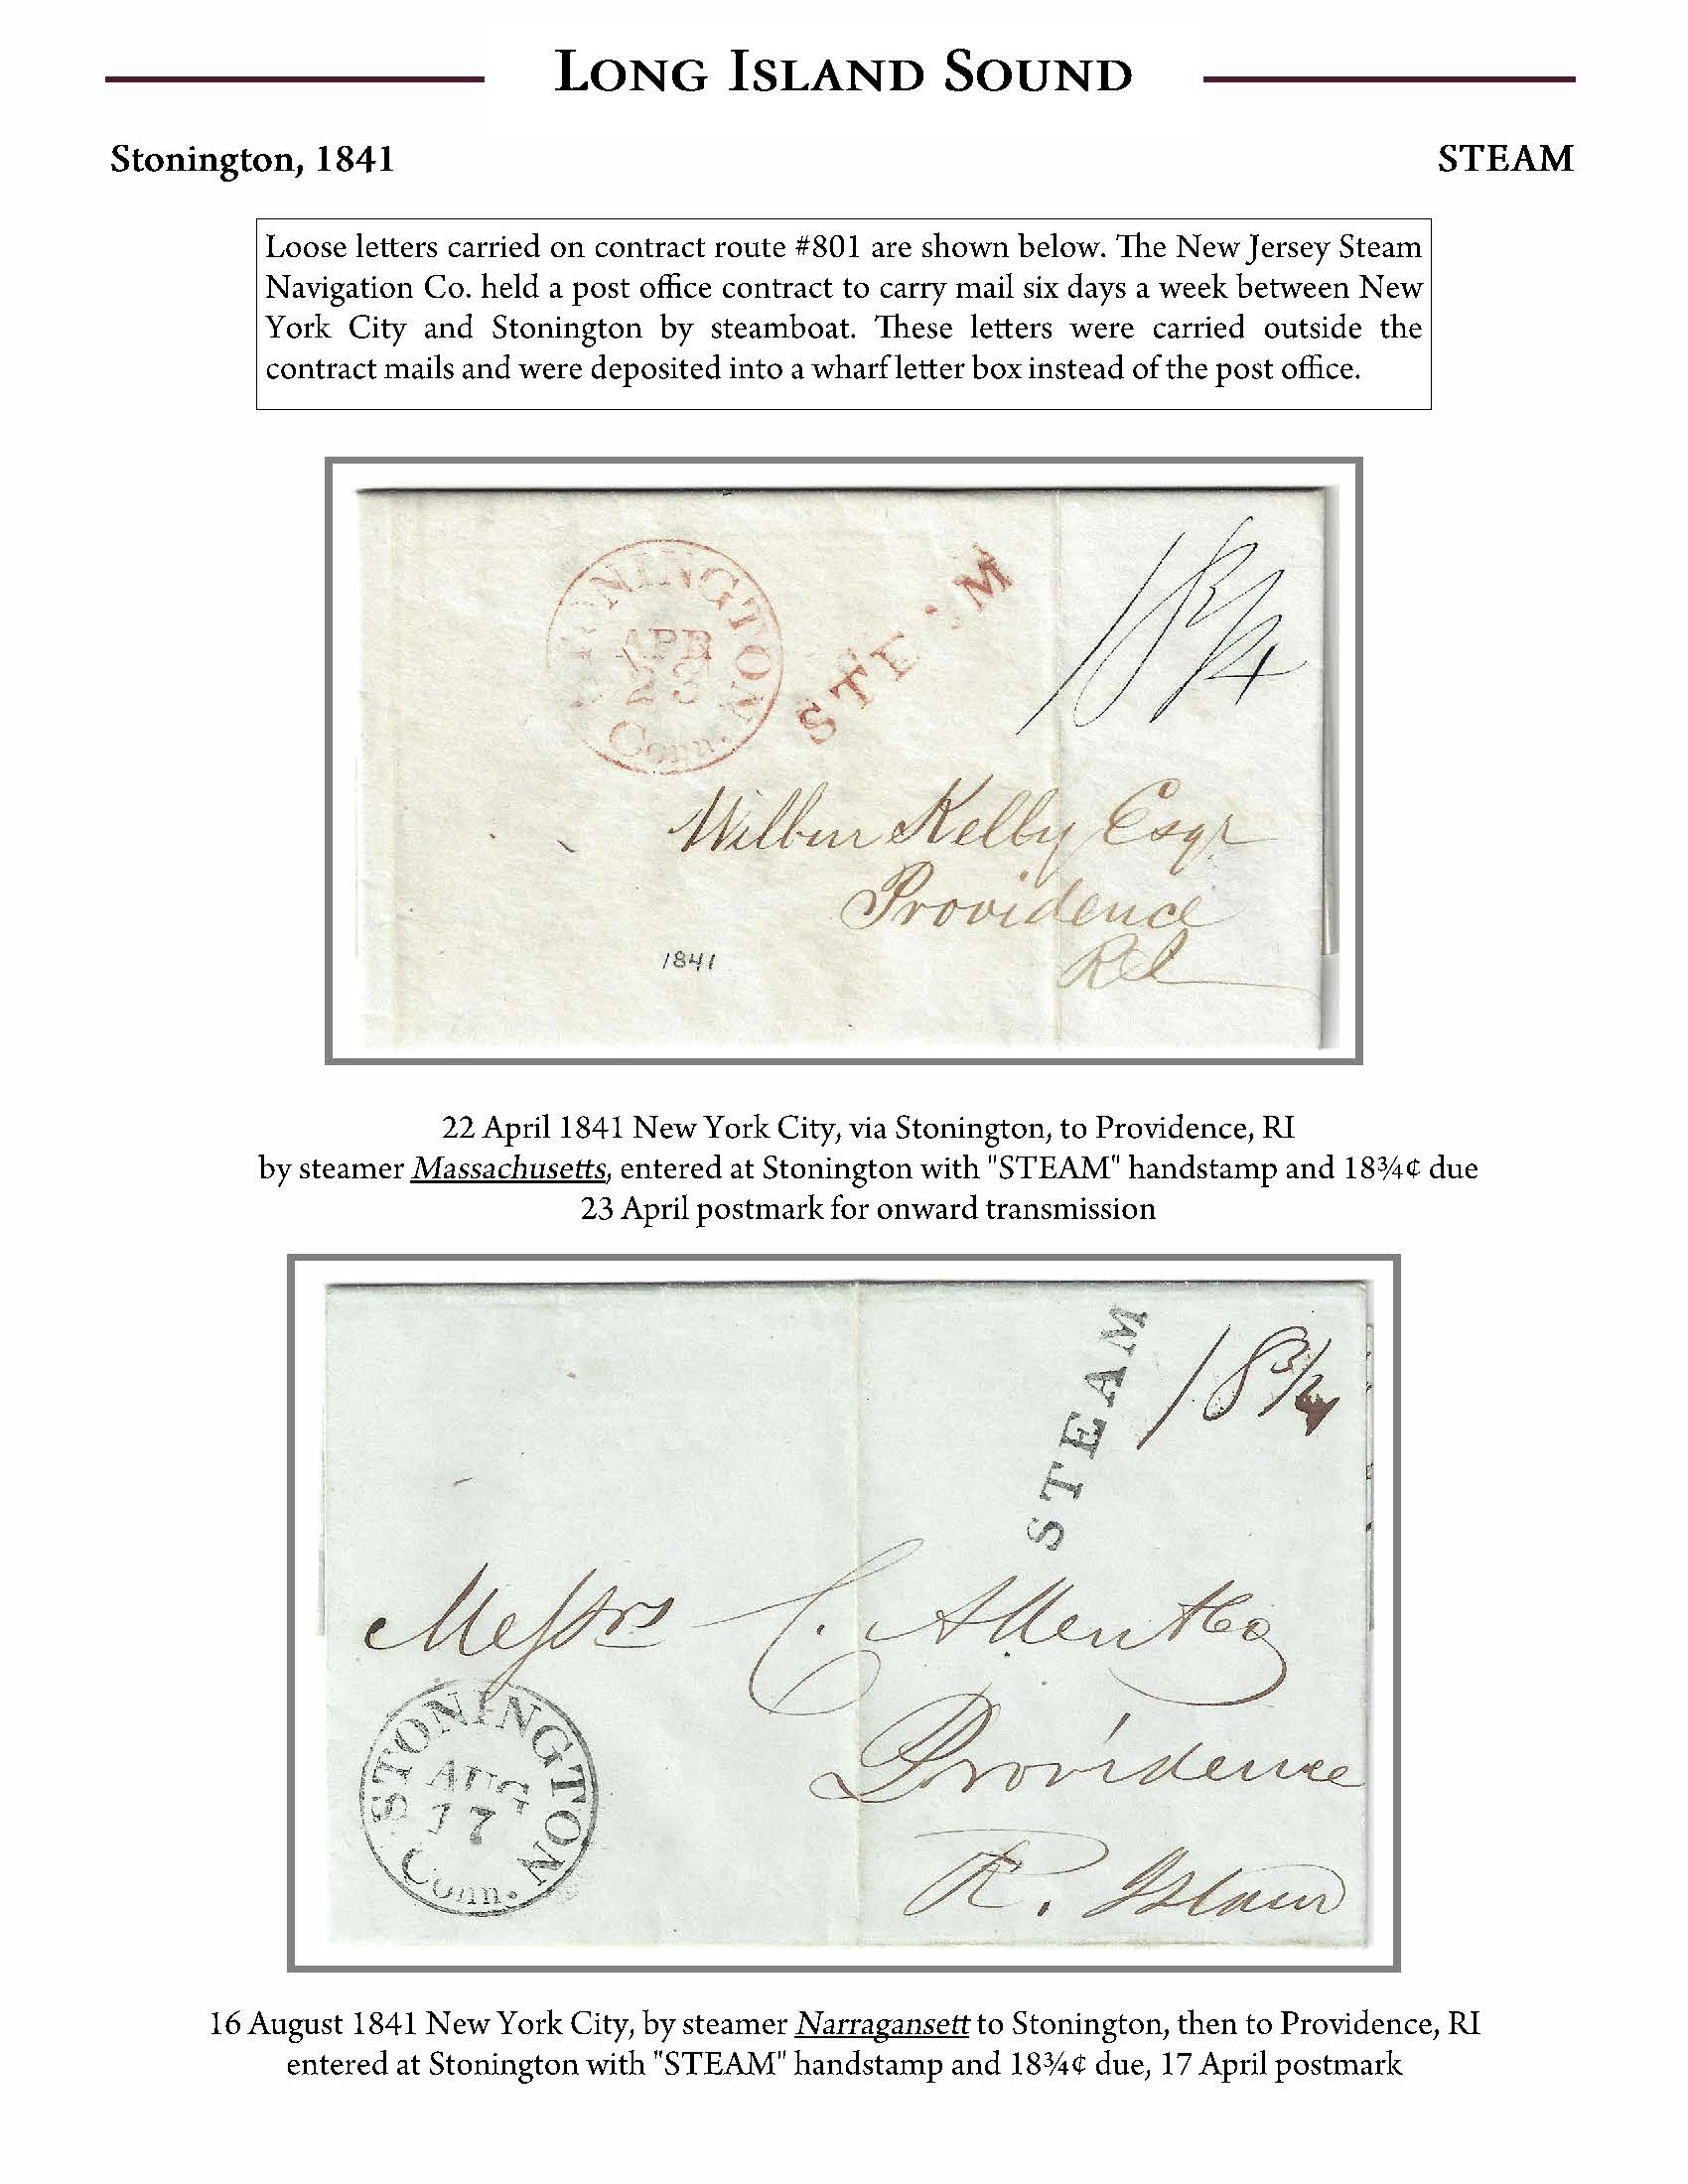 LONG ISLAND SOUND
Stonington, 1841
STEAM
Loose letters carried on contract route #801 are shown below. The New Jersey Steam
Navigation Co. held a post office contract to carry mail six days a week between New
York City and Stonington by steamboat. These letters were carried outside the
contract mails and were deposited into a wharf letter box instead of the post office.
STONINGTON
APR
23
Conn.
STEAM
18 3/4
Wilbur Kelly Esqr
Providence
RI
1841
22 April 1841 New York City, via Stonington, to Providence, RI
by steamer Massachusetts, entered at Stonington with "STEAM" handstamp and 18¾¢ due
23 April postmark for onward transmission
STEAM
18 3/4
Messrs C. Allen & Co
Providence
R. Island
STONINGTON
AUG
17
Conn.
16 August 1841 New York City, by steamer Narragansett to Stonington, then to Providence, RI
entered at Stonington with "STEAM" handstamp and 18¾¢ due, 17 April postmark